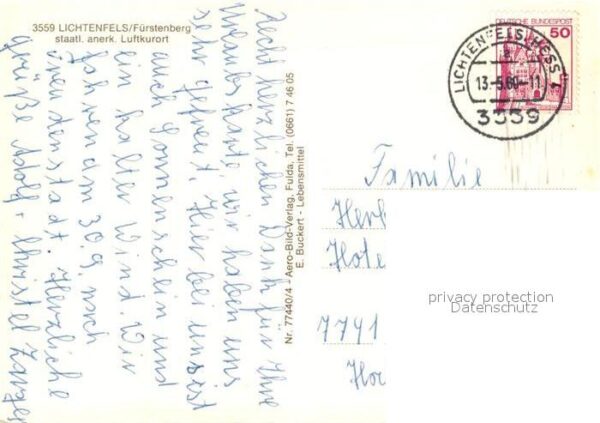 3559 LICHTENFELS/Fürstenberg
staatl. anerk. Luftkurort
Recht herzlichen Dank für Ihre
Urlaubskarte, wir haben uns
sehr gefreut. Hier bei uns ist
auch Sonnenschein und
ein kalter Wind. Wir
fahren am 30.9. nach
Freudenstadt. Herzliche
Grüße Adolf + Christel
Nr. 77440/4 - Aero-Bild-Verlag, Fulda, Tel. (0661) 7 46 05
E. Buckert - Lebensmittel
DEUTSCHE BUNDESPOST
50
LICHTENFELS, HESS 1
a
13.-5.80-11
3559
Familie
Her
Hote
7741
Ho
privacy protection
Datenschutz